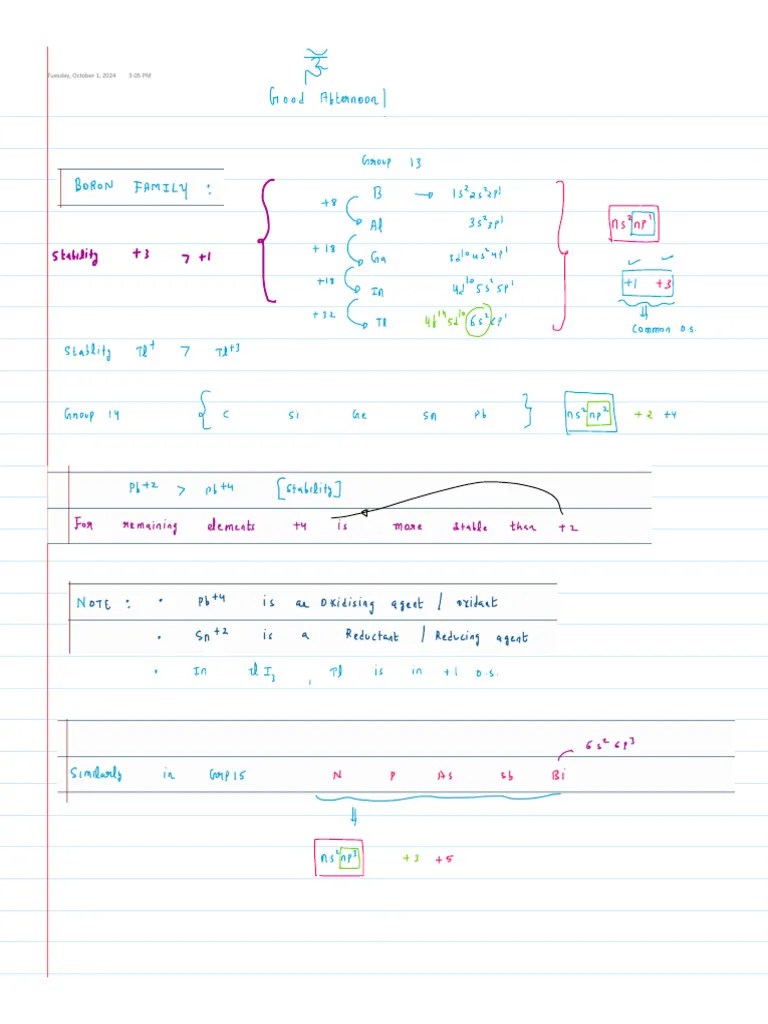 Tuesday, October 1, 2024 3:05 PM
Good Afternoon
Group 13
BORON FAMILY :
+8 B → 1s²2s²2p¹
Al 3s²3p¹
ns²np¹
Stability +3 > +1
+18 Ga 3d¹⁰4s²4p¹
+18 In 4d¹⁰5s²5p¹
+1 +3
+32 Tl 4f¹⁴5d¹⁰6s²6p¹
Common O.S.
Stablity Tl⁺ > Tl⁺³
Group 14 { C Si Ge Sn Pb } ns²np² +2 +4
Pb⁺² > Pb⁺⁴ [Stability]
For remaining elements +4 is more stable than +2
NOTE : • Pb⁺⁴ is an Oxidising agent / oxidant
• Sn⁺² is a Reductant / Reducing agent
• In TlI₃ , Tl is in +1 O.S.
6s²6p³
Similarly in Grp 15 N P As Sb Bi
ns²np³ +3 +5